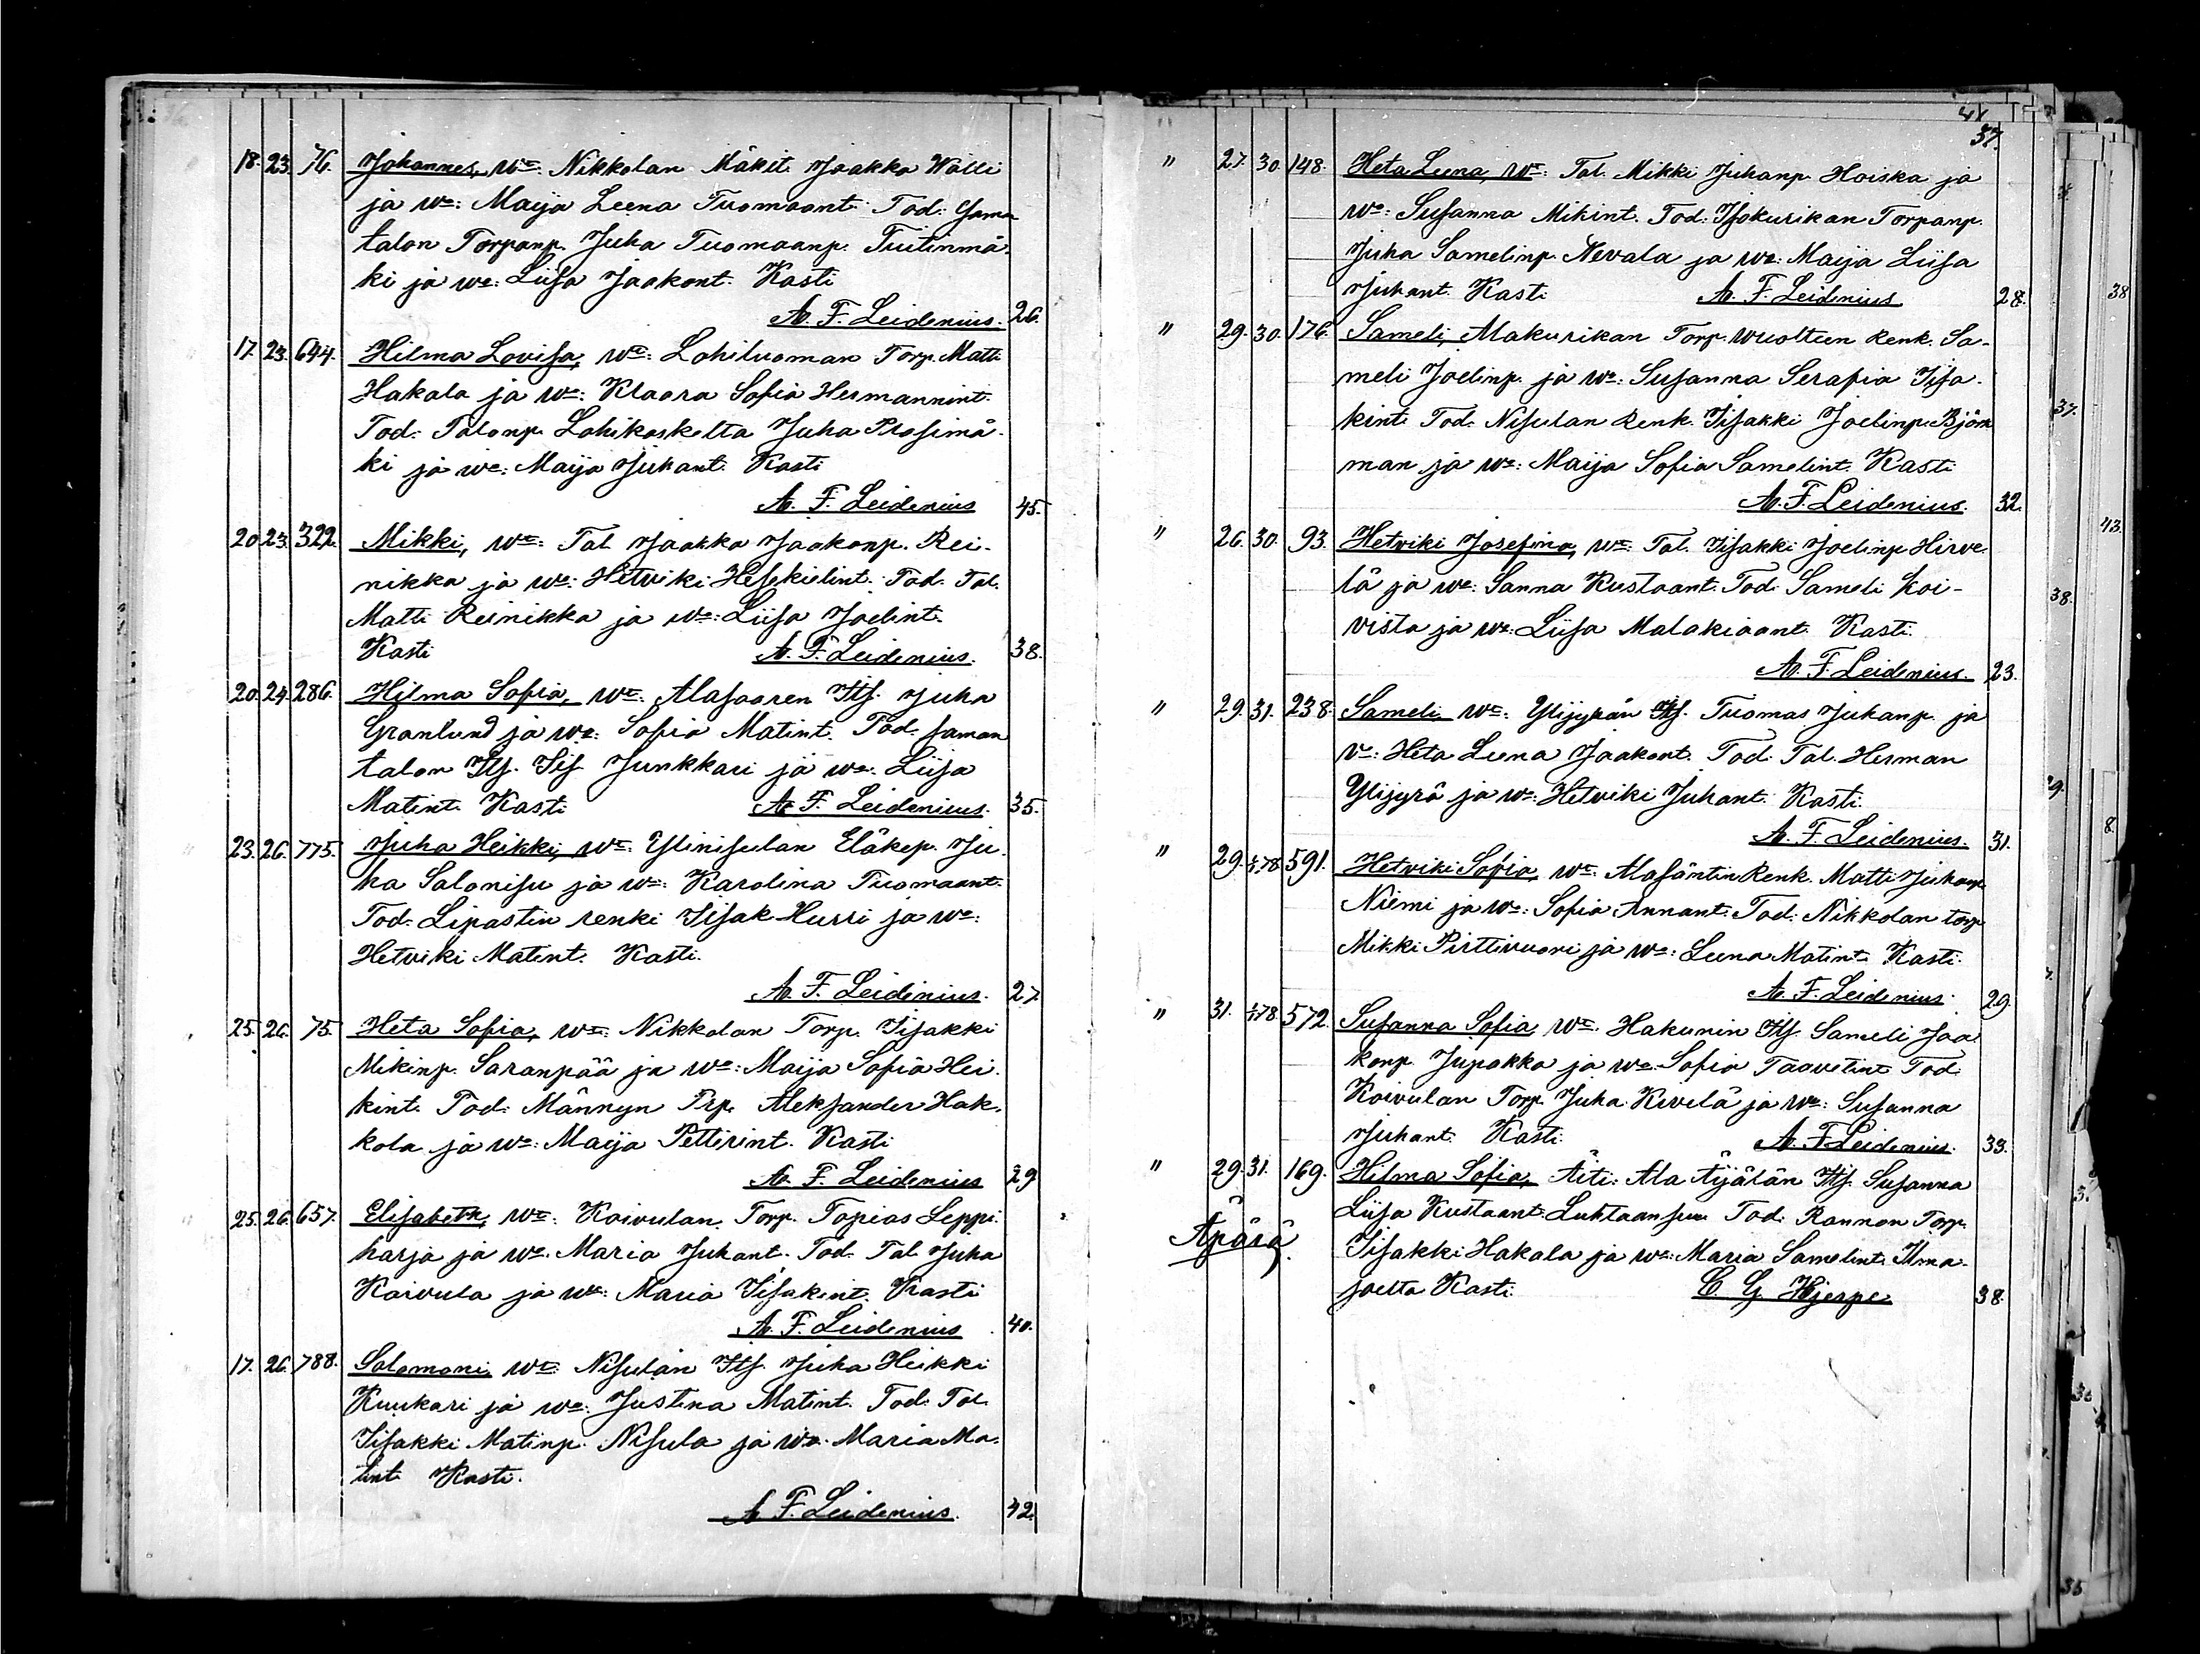 18. 23. 76. Johannes, wt: Nikkolan Mäkit. Jaakko Wälli
ja wa: Maija Leena Tuomaant. Tod: Saman
talon Torpanp. Juha Tuomaanp. Tiitinmä-
ki ja wa: Liisa Jaakont. Kasti
A. F. Leidenius. 26.
17. 23. 694. Hilma Lovisa, wt: Lohiluoman Torp. Matti
Hakala ja wa: Klaara Sofia Hermannint.
Tod: Talonp. Lohikoskelta Juha Prosimä-
ki ja wa: Maija Juhant. Kasti
A. F. Leidenius 45.
20. 23. 322. Mikki, wt: Tal. Jaakko Jaakonp. Rei-
nikka ja wa: Hetviki Hesekielint. Tod. Tal.
Matti Reinikka ja wa: Liisa Joelint.
Kasti A. F. Leidenius. 38.
20. 24. 286. Hilma Sofia, wt: Alasaaren Its. Juha
Granlund ja wa: Sofia Matint. Tod. saman
talon Its. Iis. Junkkari ja wa: Liisa
Matint. Kasti A. F. Leidenius. 35.
23. 26. 775. Juha Heikki, wt: Ylinisulan Eläkep. Ju-
ha Salonisu ja wa: Karolina Tuomaant.
Tod: Lipastin renki Iisak Hurri ja wa:
Hetviki Matint. Kasti.
A. F. Leidenius. 27.
25. 26. 75. Heta Sofia, wt: Nikkolan Torp. Iisakki
Mikinp. Saranpää ja wa: Maija Sofia Hei-
kint. Tod: Männyn Trp. Aleksander Hak-
kola ja wa: Maija Petterint. Kasti
A. F. Leidenius 29
25. 26. 657. Elisabeth, wt: Koivulan Torp. Topias Leppi-
harja ja wa. Maria Juhant. Tod. Tal. Juha
Koivula ja wa: Maria Iisakint. Kasti
A. F. Leidenius 40.
17. 26. 788. Salomoni, wt: Nisulan Its. Juha Heikki
Kuukari ja wa: Justina Matint. Tod: Tal.
Iisakki Matinp. Nisula ja wa. Maria Ma-
tint Kasti.
A. F. Leidenius. 42.
37.
" 27. 30. 148. Heta Leena, wt: Tal. Mikki Juhanp. Hoiska ja
wa: Susanna Mikint. Tod: Isokurikan Torpanp.
Juha Samelinp. Nevala ja wa: Maija Liisa
Juhant. Kasti A. F. Leidenius 28.
" 29. 30. 176. Sameli, Makurikan Torp. Wuolteen Renk. Sa-
meli Joelinp. ja wa: Susanna Serafia Iisa-
kint. Tod. Nisulan Renk. Iisakki Joelinp. Björk
man ja wa: Maija Sofia Samelint. Kasti
A. F. Leidenius. 32.
" 26. 30. 93. Hetviki Josefina, wt: Tal. Iisakki Joelinp. Hirve-
lä ja wa: Sanna Kustaant. Tod. Sameli Koi-
visto ja wa: Liisa Malakiaant. Kasti.
A. F. Leidenius. 23.
" 29. 31. 238. Sameli wt: Ylijyrän Its. Tuomas Juhanp. ja
va: Heta Leena Jaakont. Tod: Tal. Herman
Ylijyrä ja wa: Hetviki Juhant. Kasti.
A. F. Leidenius. 31.
" 29. 1/1 78 591. Hetviki Sofia, wt: Alasäntin Renk. Matti Juhanp.
Niemi ja wa: Sofia Annant. Tod: Nikkolan torp.
Mikki Pirttivuori ja wa: Leena Matint. Kasti.
A. F. Leidenius. 29.
" 31. 1/1 78 572. Susanna Sofia, wt. Hakunin Its. Sameli Jaa-
konp. Jupakka ja wa. Sofia Taavetint. Tod:
Koivulan Torp. Juha Kivelä ja wa: Susanna
Juhant. Kasti. A. F. Leidenius. 33.
" 29. 31. 169. Hilma Sofia, Äiti: Ala Äijälän Its. Susanna
Liisa Kustaant. Luhtaansuu Tod: Rannon Torp.
Äpärä. Iisakki Hakala ja wa: Maria Samelint. Ilma-
joelta Kasti. C. G. Hjerpe 38.